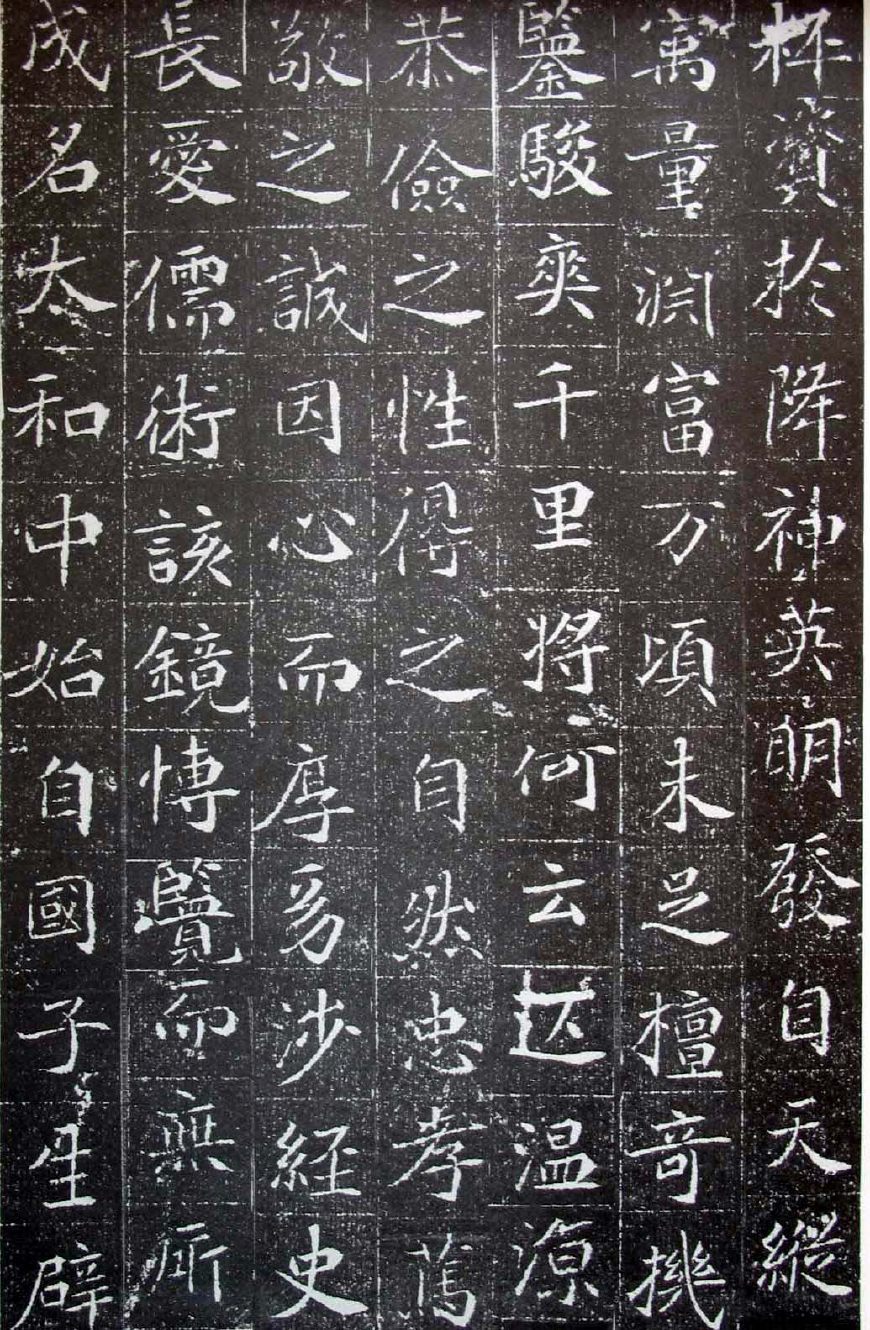 杯資於降神英明發自天縱
寓量渕富万頃未足檀奇機
鑒駿爽千里將何云达温源
恭儉之性得之自然忠孝篤
敬之誠因心而厚涉経史
長愛儒術該鏡博覽而無所
成名太和中始自國子生辟